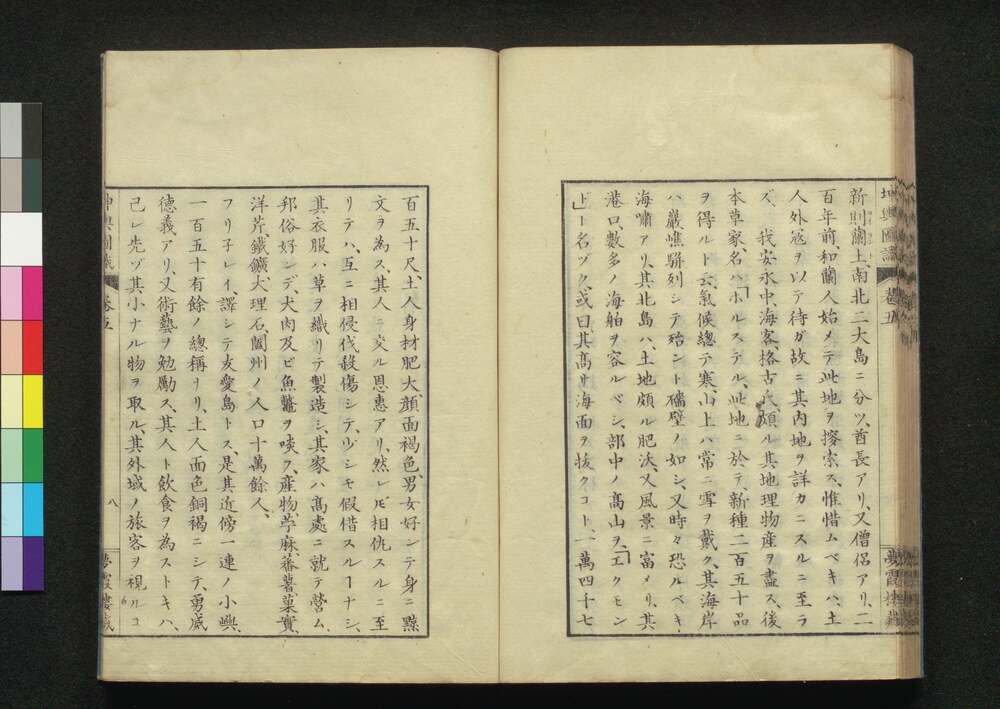 坤輿圖識
卷五
夢霞樓藏
新則蘭土南北二大島ニ分ツ、酋長アリ、又僧侶アリ、二
百年前、和蘭人始メテ此地ヲ探索ス、惟惜ムベキハ、土
人外冦ヲ以テ待ガ故ニ其内地ヲ詳カニスルニ至ラ
ズ、我安永中、海客、挌古氏、頗ル其地理物産ヲ盡ス、後
本草家、名ハ「ホルステル、此地ニ於テ、新種二百五十品
ヲ得ルト云、氣候總テ寒、山上ハ常ニ雪ヲ戴ク、其海岸
ハ巖嶕駢列シテ殆ント墻壁ノ如シ、又時々恐ルベキ
海嘯アリ、其北島ハ、土地頗ル肥沃、又風景ニ富メリ、其
港口、數多ノ海舶ヲ容ルベシ、部中ノ高山ヲ、「エクモン
ト」ト名ヅク、或曰、其高サ海面ヲ抜クコト、一萬四千七
百五十尺、土人身材肥大、顔面褐色、男女好ンテ身ニ黥
文ヲ為ス、其人ニ交ル恩惠アリ、然レ𪜈相仇スルニ至
リテハ、互ニ相侵伐殺傷シテ、ヅシモ假借スルヿナシ、
其衣服ハ草ヲ織リテ製造シ、其家ハ高處ニ就テ營ム、
邦俗好ンデ、犬肉及ビ魚鼈ヲ啖フ、産物、苧麻、蕃薯、菓實、
洋芹、鐵鑛、大理石、闔州ノ人口十萬餘人、
フリ子レイ、譯シテ友愛島トス、是其近傍一連ノ小嶼、
一百五十有餘ノ總稱リリ、土人面色銅褐ニシテ、勇威
德義アリ、又術藝ヲ勉勵ス、其人ト飲食ヲ為ストキハ、
己レ先ヅ其小ナル物ヲ取ル、其外域ノ旅客ヲ視ルコ
坤輿圖識
卷五
八
夢霞樓藏